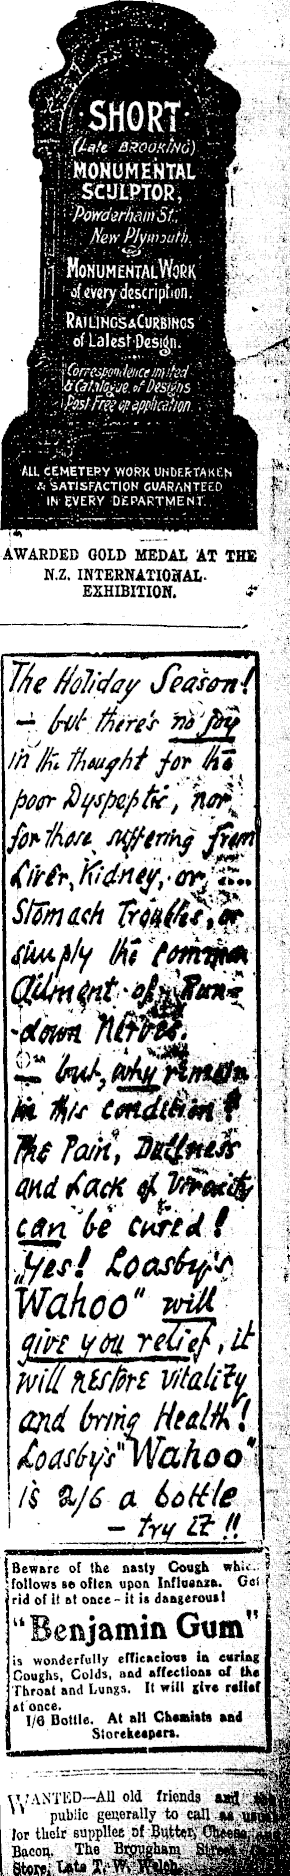 SHORT
(Late BROOKING)
MONUMENTAL
SCULPTOR,
Powderham St.,
New Plymouth.
MONUMENTAL WORK
of every description.
RAILINGS & CURBINGS
of Latest Design.
Correspondence invited
& Catalogue of Designs
Post Free on application.
ALL CEMETERY WORK UNDERTAKEN
& SATISFACTION GUARANTEED
IN EVERY DEPARTMENT.
AWARDED GOLD MEDAL AT THE
N.Z. INTERNATIONAL
EXHIBITION.
The Holiday Season!
— but there's no joy
in the thought for the
poor Dyspeptic, nor
for those suffering from
Liver, Kidney, or
Stomach Troubles, or
simply the common
Ailment of Run-
-down Nerves.
— but, why remain
in this condition?
The Pain, Dullness
and Lack of Vivacity
can be cured!
Yes! Loasby's
"Wahoo" will
give you relief, it
will restore vitality
and bring Health!
Loasby's "Wahoo"
is 2/6 a bottle
— try it!!
Beware of the nasty Cough which
follows so often upon Influenza. Get
rid of it at once - it is dangerous!
"Benjamin Gum"
is wonderfully efficacious in curing
Coughs, Colds, and affections of the
Throat and Lungs. It will give relief
at once.
1/6 Bottle. At all Chemists and
Storekeepers.
WANTED—All old friends and the
public generally to call as usual
for their supplies of Butter, Cheese and
Bacon. The Brougham Street
Store, Late T. W. Welch.